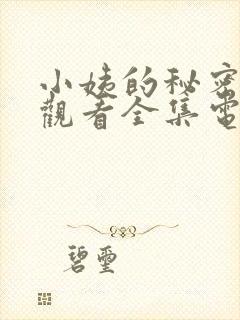 小姨的秘密
觀看全集電
碧璽